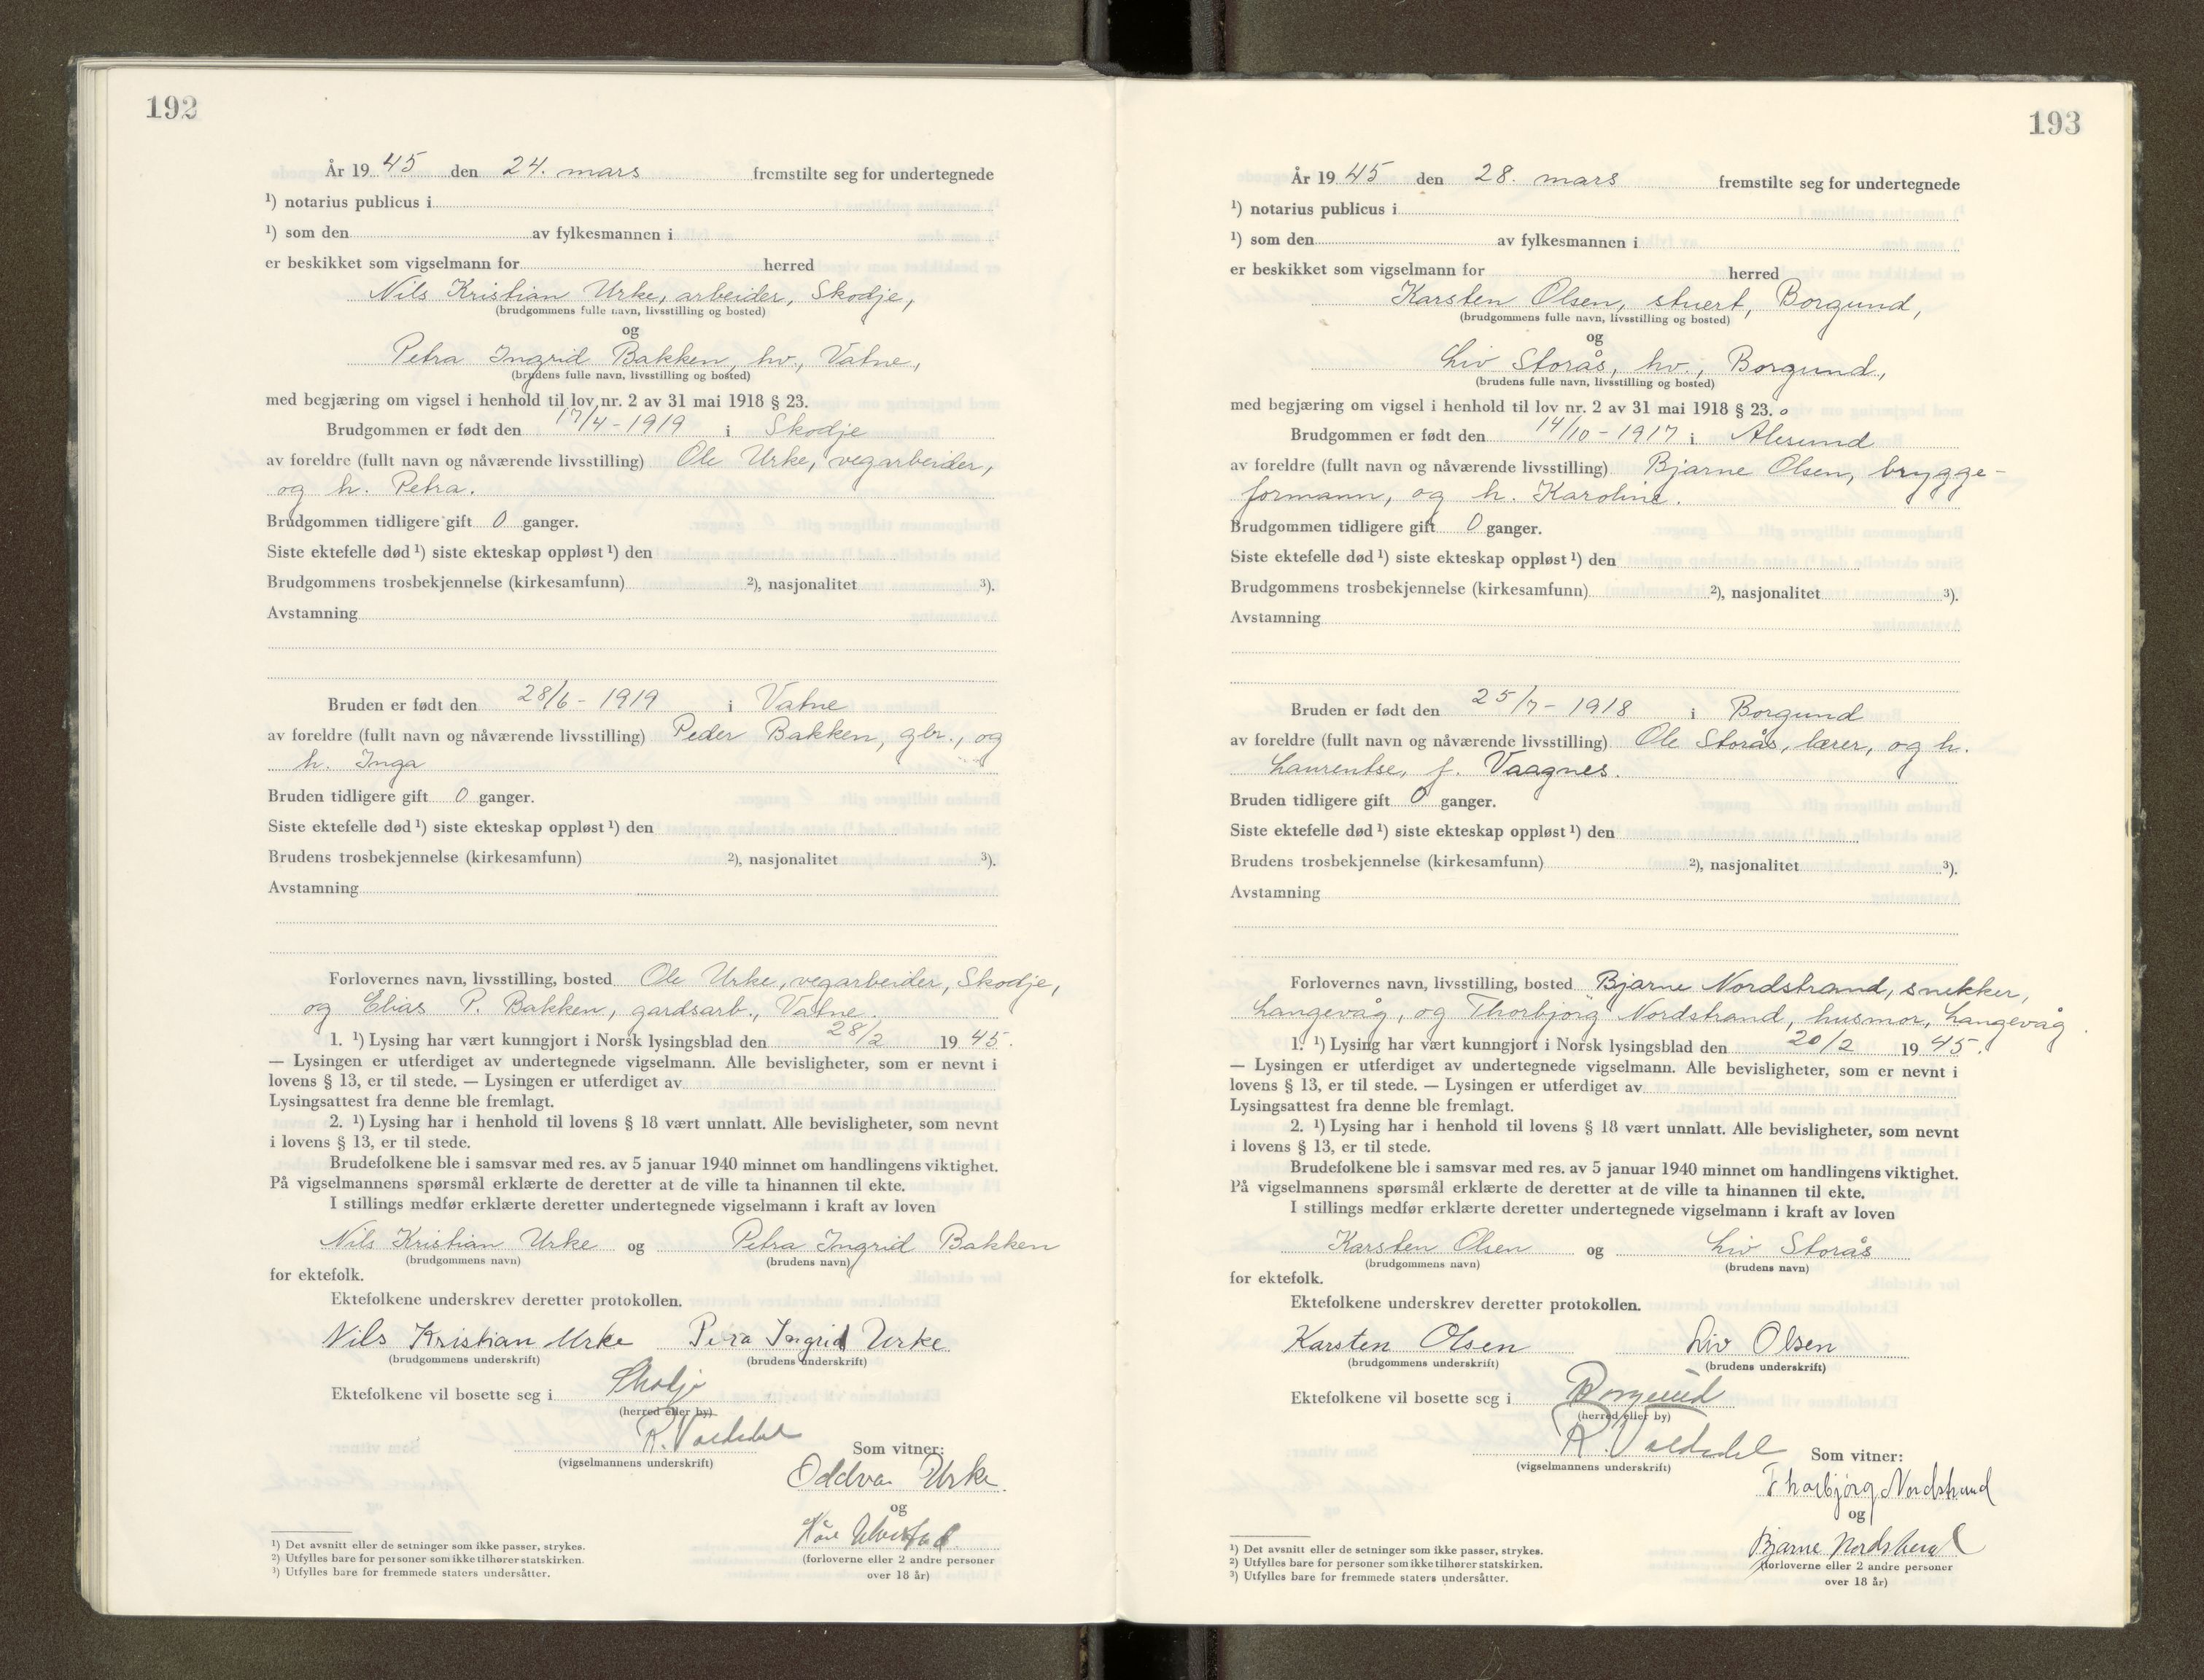 192
År 19 45 den 24. mars fremstilte seg for undertegnede
¹) notarius publicus i
¹) som den av fylkesmannen i
er beskikket som vigselmann for herred
Nils Kristian Urke, arbeider, Skodje,
(brudgommens fulle navn, livsstilling og bosted)
og
Petra Ingrid Bakken, hv., Vatne,
(brudens fulle navn, livsstilling og bosted)
med begjæring om vigsel i henhold til lov nr. 2 av 31 mai 1918 § 23.
Brudgommen er født den 17/4 - 1919 i Skodje
av foreldre (fullt navn og nåværende livsstilling) Ole Urke, vegarbeider,
og h. Petra.
Brudgommen tidligere gift 0 ganger.
Siste ektefelle død ¹) siste ekteskap oppløst ¹) den
Brudgommens trosbekjennelse (kirkesamfunn) ²), nasjonalitet ³).
Avstamning
Bruden er født den 28/6 - 1919 i Vatne
av foreldre (fullt navn og nåværende livsstilling) Peder Bakken, gbr., og
h. Inga
Bruden tidligere gift 0 ganger.
Siste ektefelle død ¹) siste ekteskap oppløst ¹) den
Brudens trosbekjennelse (kirkesamfunn) ²), nasjonalitet ³).
Avstamning
Forlovernes navn, livsstilling, bosted Ole Urke, vegarbeider, Skodje,
og Elias P. Bakken, gardsarb., Vatne.
1. ¹) Lysing har vært kunngjort i Norsk lysingsblad den 28/2 19 45.
— Lysingen er utferdiget av undertegnede vigselmann. Alle bevisligheter, som er nevnt i
lovens § 13, er til stede. — Lysingen er utferdiget av
Lysingsattest fra denne ble fremlagt.
2. ¹) Lysing har i henhold til lovens § 18 vært unnlatt. Alle bevisligheter, som nevnt
i lovens § 13, er til stede.
Brudefolkene ble i samsvar med res. av 5 januar 1940 minnet om handlingens viktighet.
På vigselmannens spørsmål erklærte de deretter at de ville ta hinannen til ekte.
I stillings medfør erklærte deretter undertegnede vigselmann i kraft av loven
Nils Kristian Urke og Petra Ingrid Bakken
(brudgommens navn) (brudens navn)
for ektefolk.
Ektefolkene underskrev deretter protokollen.
Nils Kristian Urke Petra Ingrid Urke
(brudgommens underskrift) (brudens underskrift)
Ektefolkene vil bosette seg i Skodje
(herred eller by)
R. Valdedal
(vigselmannens underskrift)
Som vitner:
Oddvar Urke
og
(forloverne eller 2 andre personer
over 18 år)
¹) Det avsnitt eller de setninger som ikke passer, strykes.
²) Utfylles bare for personer som ikke tilhører statskirken.
³) Utfylles bare for fremmede staters undersåtter.
193
År 19 45 den 28. mars fremstilte seg for undertegnede
¹) notarius publicus i
¹) som den av fylkesmannen i
er beskikket som vigselmann for herred
Karsten Olsen, stuert, Borgund,
(brudgommens fulle navn, livsstilling og bosted)
og
Liv Storås, hv., Borgund,
(brudens fulle navn, livsstilling og bosted)
med begjæring om vigsel i henhold til lov nr. 2 av 31 mai 1918 § 23.
Brudgommen er født den 14/10 - 1917 i Ålesund
av foreldre (fullt navn og nåværende livsstilling) Bjarne Olsen, brygge-
formann, og h. Karoline.
Brudgommen tidligere gift 0 ganger.
Siste ektefelle død ¹) siste ekteskap oppløst ¹) den
Brudgommens trosbekjennelse (kirkesamfunn) ²), nasjonalitet ³).
Avstamning
Bruden er født den 25/7 - 1918 i Borgund
av foreldre (fullt navn og nåværende livsstilling) Ole Storås, lærer, og h.
Laurentse, f. Vaagnes.
Bruden tidligere gift 0 ganger.
Siste ektefelle død ¹) siste ekteskap oppløst ¹) den
Brudens trosbekjennelse (kirkesamfunn) ²), nasjonalitet ³).
Avstamning
Forlovernes navn, livsstilling, bosted Bjarne Nordstrand, snekker,
Langevåg, og Thorbjörg Nordstrand, husmor, Langevåg.
1. ¹) Lysing har vært kunngjort i Norsk lysingsblad den 20/2 19 45.
— Lysingen er utferdiget av undertegnede vigselmann. Alle bevisligheter, som er nevnt i
lovens § 13, er til stede. — Lysingen er utferdiget av
Lysingsattest fra denne ble fremlagt.
2. ¹) Lysing har i henhold til lovens § 18 vært unnlatt. Alle bevisligheter, som nevnt
i lovens § 13, er til stede.
Brudefolkene ble i samsvar med res. av 5 januar 1940 minnet om handlingens viktighet.
På vigselmannens spørsmål erklærte de deretter at de ville ta hinannen til ekte.
I stillings medfør erklærte deretter undertegnede vigselmann i kraft av loven
Karsten Olsen og Liv Storås
(brudgommens navn) (brudens navn)
for ektefolk.
Ektefolkene underskrev deretter protokollen.
Karsten Olsen Liv Olsen
(brudgommens underskrift) (brudens underskrift)
Ektefolkene vil bosette seg i Borgund
(herred eller by)
R. Valdedal
(vigselmannens underskrift)
Som vitner:
Thorbjörg Nordstrand
og
Bjarne Nordstrand
(forloverne eller 2 andre personer
over 18 år)
¹) Det avsnitt eller de setninger som ikke passer, strykes.
²) Utfylles bare for personer som ikke tilhører statskirken.
³) Utfylles bare for fremmede staters undersåtter.